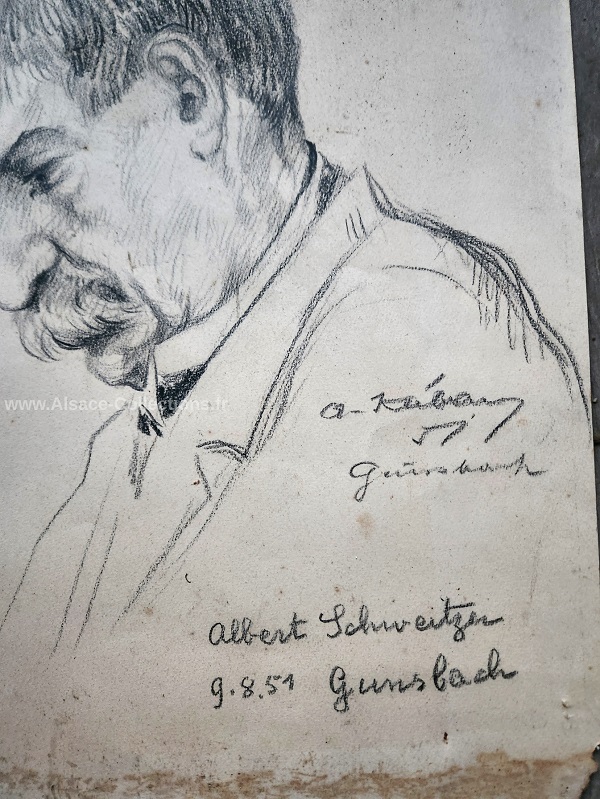 www.Alsace-Collections.fr
51
Gunsbach
Albert Schweitzer
9.8.51 Gunsbach